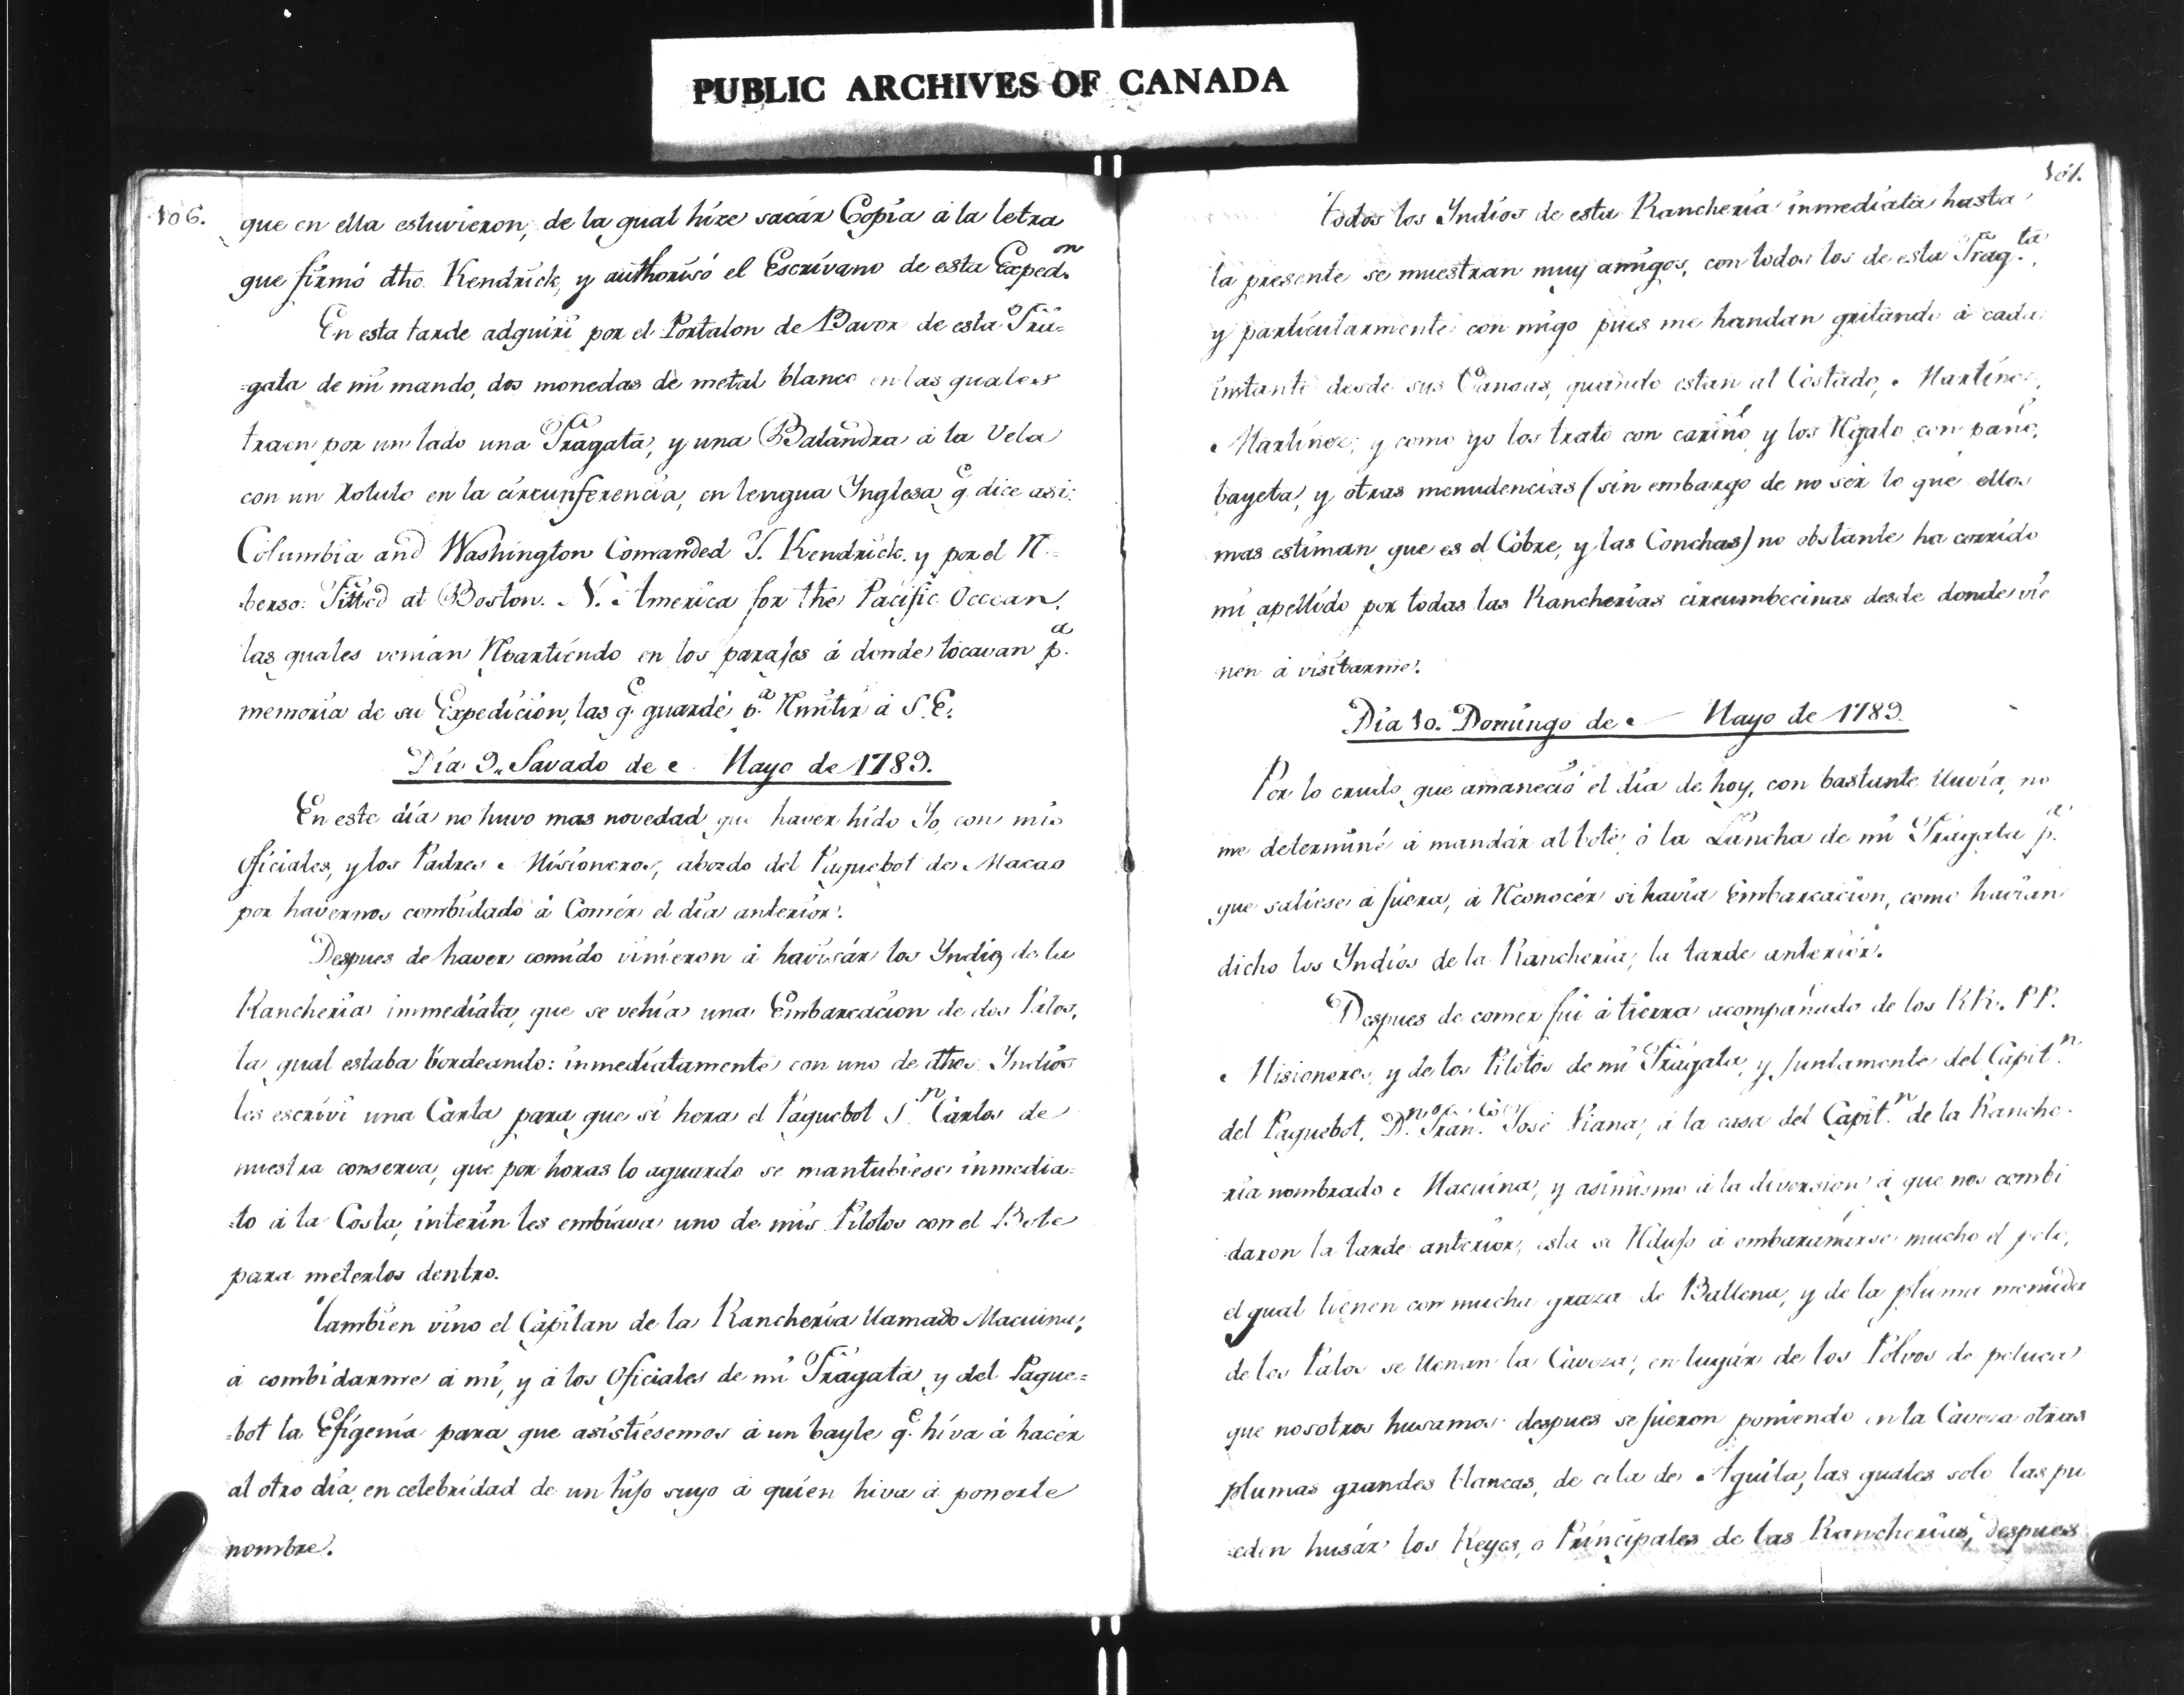 PUBLIC ARCHIVES OF CANADA
106.
que en ella estuvieron, de la qual hize sacár Copia á la letra
que firmó dho. Kendrick, y authorisó el Escrivano de esta Exped.on
En esta tarde adquirí por el Portalon de Bavor de esta Fra=
=gata de mi mando, dos monedas de metal blanco en las quales
traen por un lado una Fragata, y una Balandra á la Vela
con un Rotulo en la circunferencia, en lengua Ynglesa q.e dice asi:
Columbia and Washington Comanded J. Kendrick. y por el R=
=berso: Fitted at Boston. N. America for the Pacific Occean,
las quales venian Rpartiendo en los parajes á donde tocavan p.a
memoria de su Expedicion, las q.e guardé p.a Rmitir á S.E.
Dia 9,, Savado de Mayo de 1789.
En este dia no huvo mas novedad que haver hido Yo, con mis
Oficiales, y los Padres Misioneros, abordo del Paquebot de Macao
por havernos combidado á Comér el dia anterior.
Despues de haver comido vinieron á havisár los Yndios de la
Rancheria immediata, que se vehia una Embarcacion de dos Palos,
la qual estaba bordeando: inmediatamente con uno de dhos. Yndios
les escrivi una Carta para que si hera el Paquebot S.n Carlos de
nuestra conserva, que por horas lo aguardo se mantubiese inmedia=
=to á la Costa, interin les embiava uno de mis Pilotos con el Bote
para meterlos dentro.
Tambien vino el Capitan de la Rancheria llamado Macuina,
á combidarme á mi, y á los Oficiales de mi Fragata y del Paque=
=bot la Efigenia para que asistiesemos á un bayle q.e hiva á hacér
al otro dia, en celebridad de un hijo suyo á quien hiva á ponerle
nombre.
107.
Todos los Yndios de esta Rancheria inmediata hasta
la presente se muestran muy amigos, con todos los de esta Frag.ta,
y particularmente con migo pues me handan gritando á cada
instante desde sus Canoas, quando estan al Costado, Martinez,
Martinez; y como yo los trato con cariño y los Rgalo con paño,
bayeta, y otras menudencias (sin embargo de no ser lo que ellos
mas estiman que es el Cobre, y las Conchas) no obstante ha corrido
mi apellido por todas las Rancherias circumbecinas desde donde vie
nen á visitarme.
Dia 10. Domingo de Mayo de 1789.
Por lo crudo que amaneció el dia de hoy, con bastante lluvia, no
me determiné á mandár al bote, ó la Lancha de mi Fragata p.a
que saliese á fuera, á Rconocér si havia Embarcacion, como havian
dicho los Yndios de la Rancheria, la tarde anterior.
Despues de comer fui á tierra acompañado de los RR. PP.
Misioneros, y de los Pilotos de mi Fragata, y juntamente del Capit.n
del Paquebot, D.n Fran.co José Viana, á la casa del Capit.n de la Ranche-
ria nombrado Macuina, y asimismo á la diversion á que nos combi
=daron la tarde anterior, esta se Rdujo á embarrarse mucho el pelo,
el qual tienen con mucha graza de Ballena, y de la pluma menuda
de los Patos se llenan la Caveza, en lugár de los Polvos de peluca
que nosotros husamos despues se fueron poniendo en la Caveza otras
plumas grandes blancas, de cola de Aguila, las quales solo las pu
=eden husár los Reyes, o Principales de las Rancherias, despues